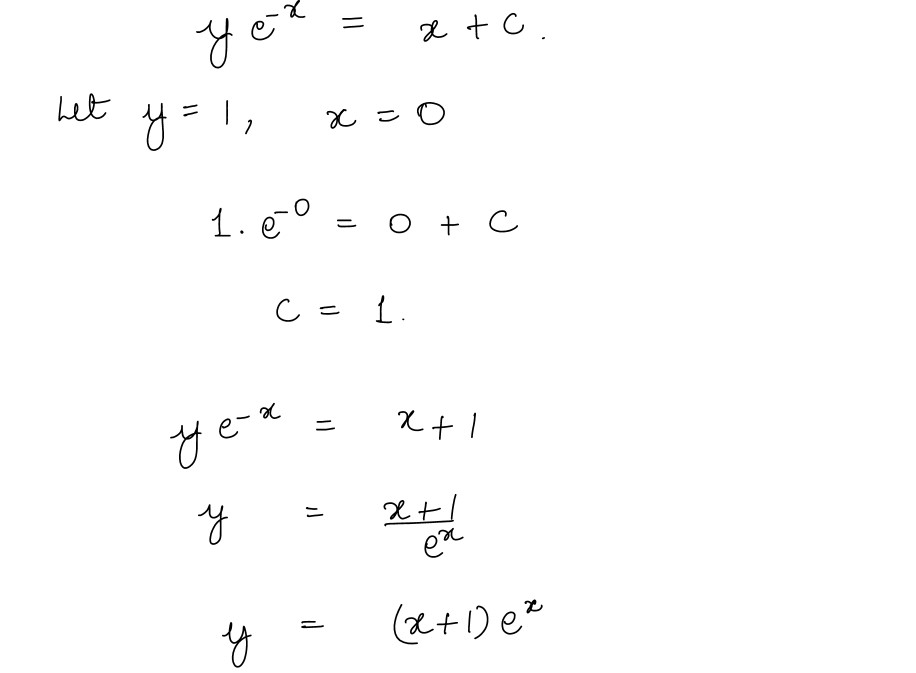 y e⁻ˣ = x + C.
Let y = 1, x = 0
1. e⁻⁰ = 0 + C
C = 1.
y e⁻ˣ = x + 1
y = (x+1)/eˣ
y = (x+1) eˣ